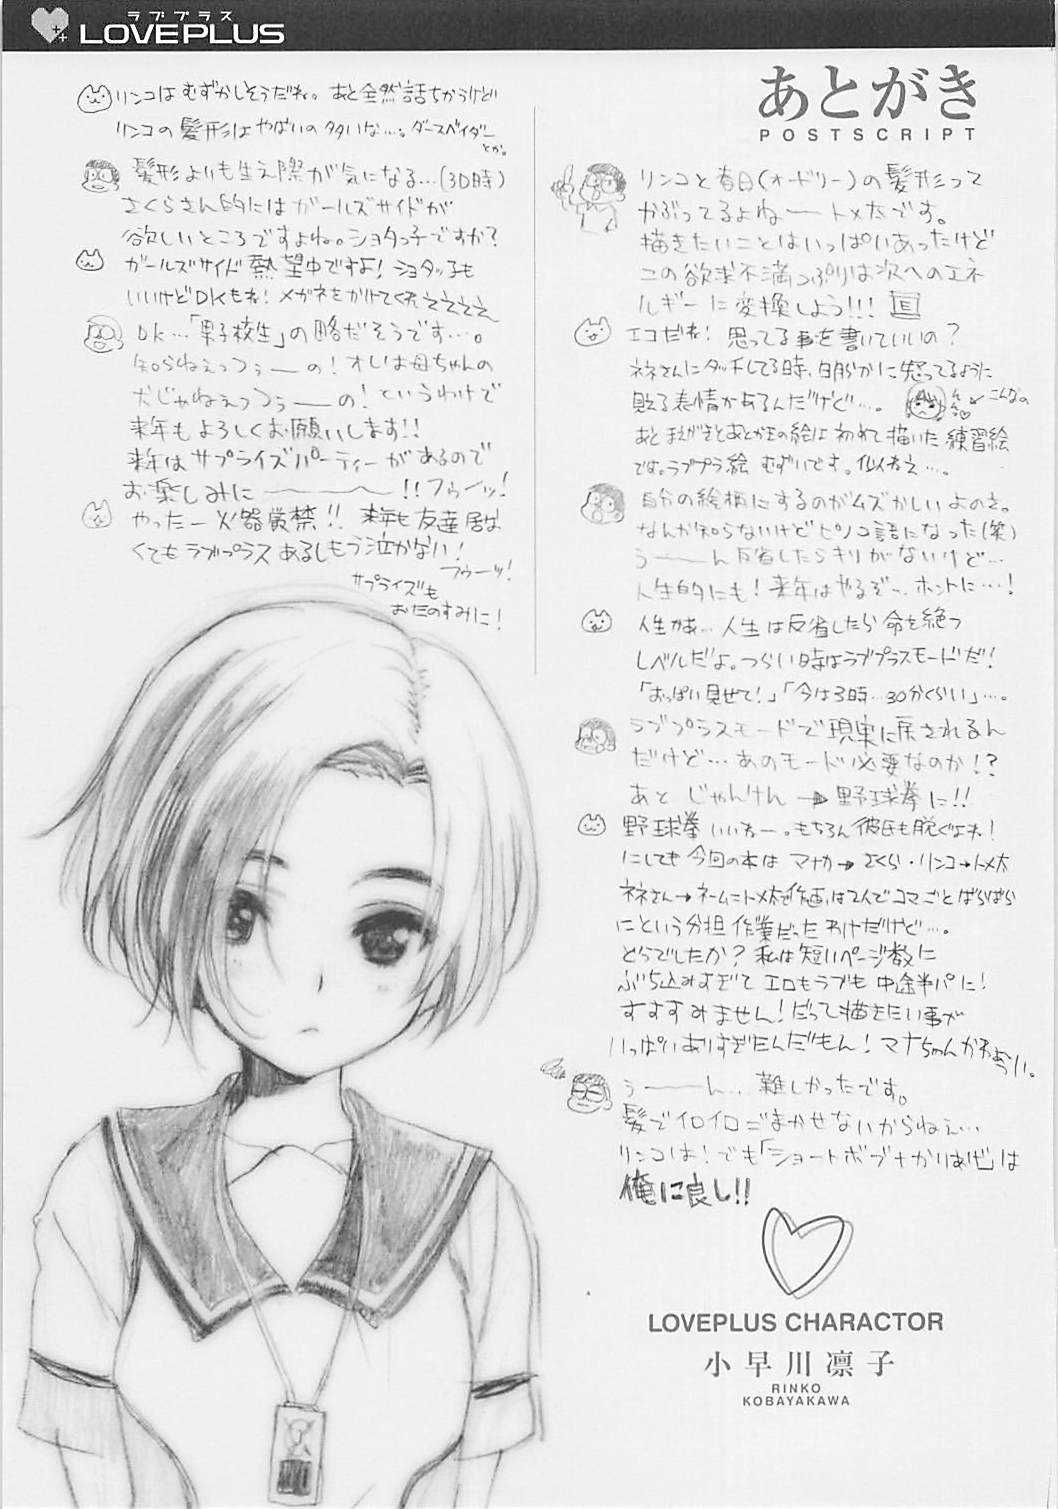 ラブプラス
LOVEPLUS
あとがき
POSTSCRIPT
リンコと春日(オードリー)の髪形って
かぶってるよねートメ太です。
描きたいことはいっぱいあったけど
この欲求不満っぷりは次へのエネ
ルギーに変換しよう!!!
エコだね!思ってる事を書いていいの?
ネネさんにタッチしてる時、明らかに怒ってるように
見える表情があるんだけど…。
こんなの
あとまえがきとあとがきの絵は初めて描いた練習絵
です。ラブプラ絵むずいです。似ねえ…。
自分の絵柄にするのがムズかしいよのさ。
なんか知らないけどピノコ語になった(笑)
うーーん反省したらキリがないけど…
人生的にも!来年はやるぞ〜、ホントに…!
人生かぁ…人生は反省したら命を絶つ
レベルだよ。つらい時はラブプラスモードだ!
「おっぱい見せて!」「今は3時…30分くらい」…。
ラブプラスモードで現実に戻されるん
だけど…あのモード必要なのか!?
あと じゃんけん→野球拳に!!
野球拳いいねー。もちろん彼氏も脱ぐよね!
にしても今回の本は マナカ→さくら・リンコ→トメ太
ネネさん→ネームにトメ太で作画は2人でコマごとばらばら
にという分担作業だったわけだけど…。
どうでしたか?私は短いページ数に
ぶち込みすぎて エロもラブも中途半パに!
すすすみません!だって描きたい事が
いっぱいありすぎたんだもん!マナちゃんかわあうい。
うーーん…難しかったです。
髪でイロイロごまかせないからねぇ…
リンコは!でも「ショートボブ+かりあげ」は
俺に良し!!
LOVEPLUS CHARACTOR
小早川凛子
RINKO
KOBAYAKAWA
リンコはむずかしそうだね。あと全然話ちがうけど
リンコの髪形はやばいの多いな…。ダースベイダー
とか。
髪形よりも生え際が気になる…(30時)
さくらさん的にはガールズサイドが
欲しいところですよね。ショタっ子ですか?
ガールズサイド熱望中ですよ!ショタっ子も
いいけどDKもね!メガネをかけてくれええええ
DK…「男子校生」の略だそうです…。
知らねえっつぅーの!オレは母ちゃんの
犬じゃねえっつぅーの!というわけで
来年もよろしくお願いします!!
来年はサプライズパーティーがあるので
お楽しみに〜〜〜!!フゥーッ!
やったー火器厳禁!!来年も友達居な
くてもラブプラスあるしもう泣かない!
フゥーッ!
サプライズも
おたのすみに!